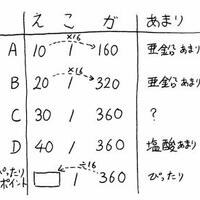 え こ が あまり
×16
A 10 1 160 亜鉛あまり
×16
B 20 1 320 亜鉛あまり
C 30 1 360 ?
D 40 1 360 塩酸あまり
÷16
ぴったり
ポイント 1 360 ぴったり